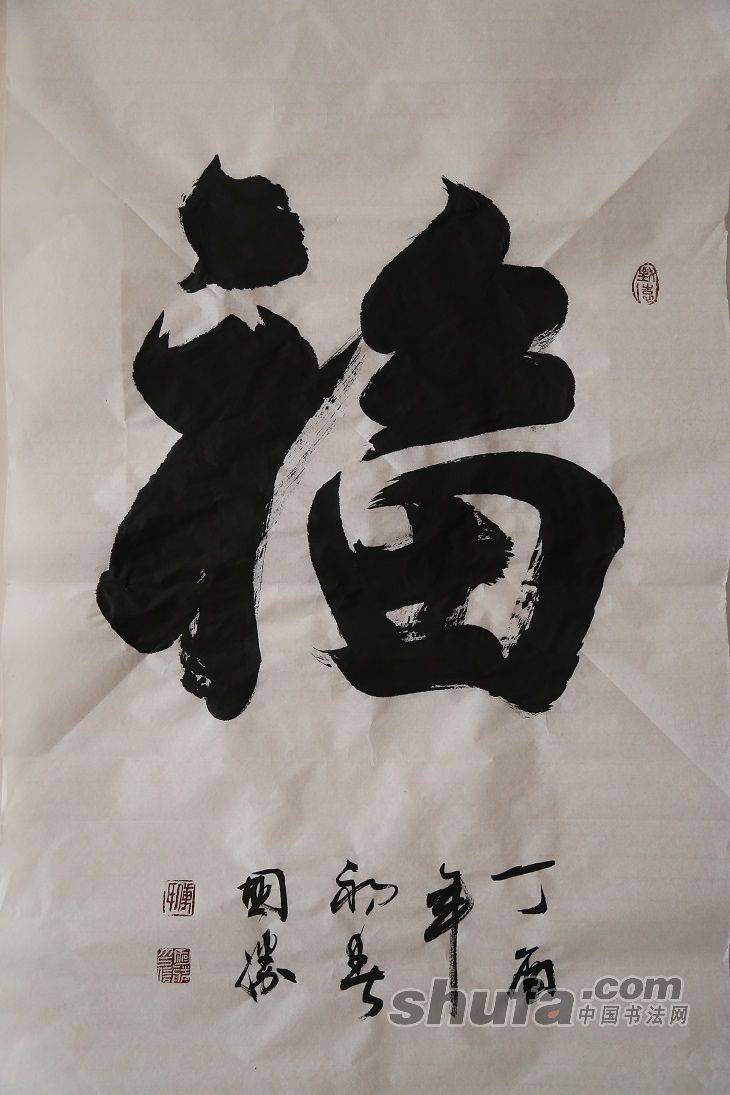 福
丁酉
年
初春
國勝
shufa.com
中国书法网